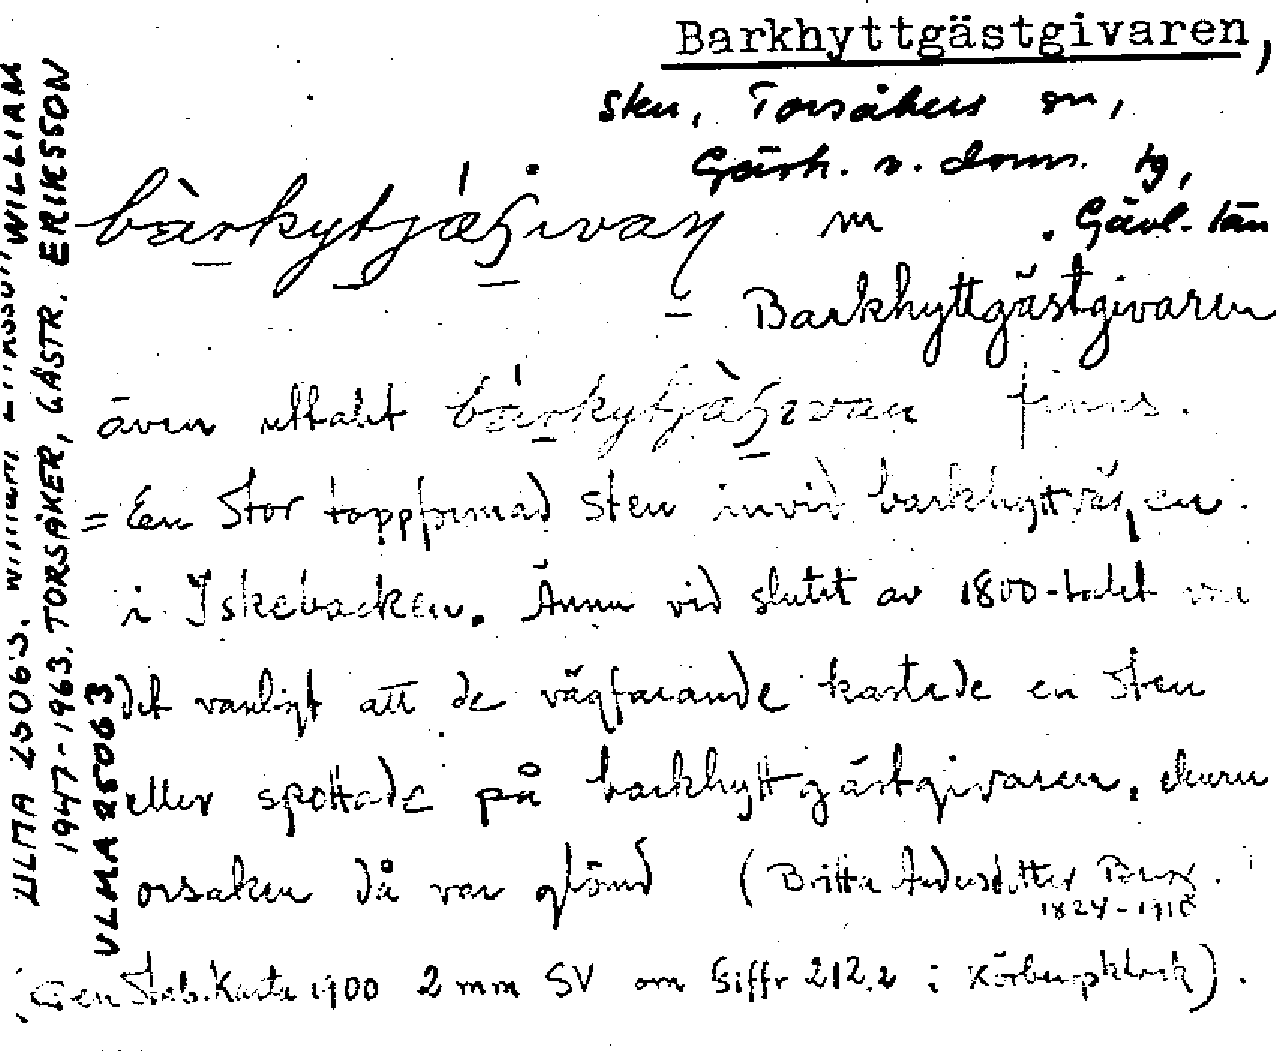 Barkhyttgästgivaren,
sten, Torsåkers sn,
Gästr. v. doms. tg,
Gävl. län
bàrkytjǽʂivaɳ m
Barkhyttgästgivaren
även uttalet bárkytjæ̀ʂivan finns.
= En stor toppformad sten invid barkhyttvägen
i Iskebacken. Ännu vid slutet av 1800-talet var
det vanligt att de vägfarande kastade en sten
eller spottade på barkhyttgästgivaren, ehuru
orsaken då var glömd (Britta Andersdotter Berg.
1824-1918
Gen Stab. Karta 1900 2 mm SV om Siffr 212,2 i Körberpsklack).
ULMA 25063. William Eriksson WILLIAM
1947-1963. TORSÅKER, GÄSTR. ERIKSSON
ULMA 25063